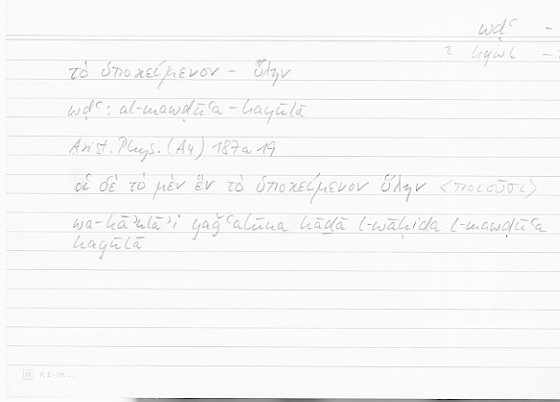 wḍʿ –
? hywl –
τὸ ὑποκείμενον – ὕλην
wḍʿ: al-mawḍūʿa – hayūlā
Arist. Phys. (A4) 187a 19
οἱ δὲ τὸ μὲν ἓν τὸ ὑποκείμενον ὕλην <ποιοῦσι>
wa-hāʾulāʾi yaǧʿalūna hāḏā l-wāḥida l-mawḍūʿa
hayūlā